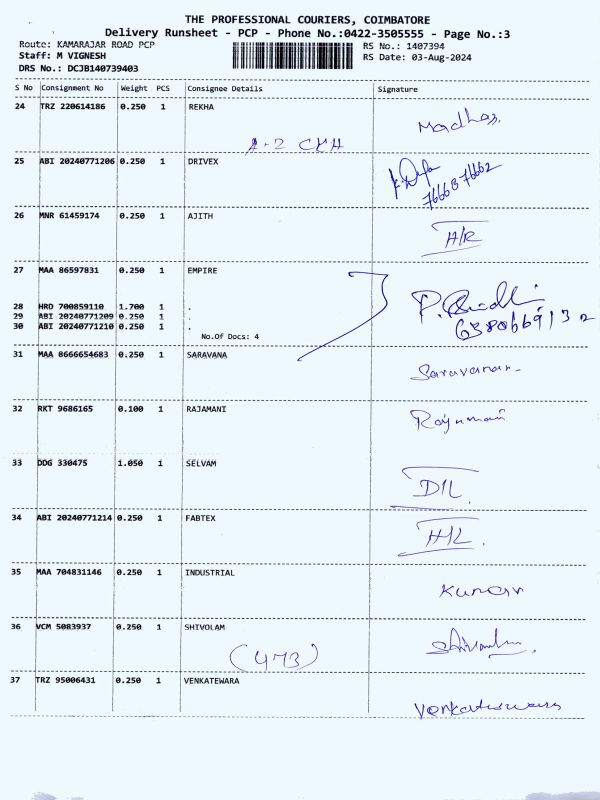 THE PROFESSIONAL COURIERS, COIMBATORE
Delivery Runsheet - PCP - Phone No.:0422-3505555 - Page No.:3
Route: KAMARAJAR ROAD PCP
RS No.: 1407394
Staff: M VIGNESH
RS Date: 03-Aug-2024
DRS No.: DCJB140739403
S No Consignment No Weight PCS Consignee Details Signature
24 TRZ 220614186 0.250 1 REKHA
25 ABI 20240771206 0.250 1 DRIVEX
76663 76662
26 MNR 61459174 0.250 1 AJITH
H/R
27 MAA 86597831 0.250 1 EMPIRE
28 HRD 700859110 1.700 1 .
29 ABI 20240771209 0.250 1 .
30 ABI 20240771210 0.250 1 .
No.Of Docs: 4
31 MAA 8666654683 0.250 1 SARAVANA
Saravanan
32 RKT 9686165 0.100 1 RAJAMANI
Rajamani
33 DDG 330475 1.050 1 SELVAM
D/L
34 ABI 20240771214 0.250 1 FABTEX
H/L.
35 MAA 704831146 0.250 1 INDUSTRIAL
Kumar
36 VCM 5083937 0.250 1 SHIVOLAM
(473)
37 TRZ 95006431 0.250 1 VENKATEWARA
Venkateswara